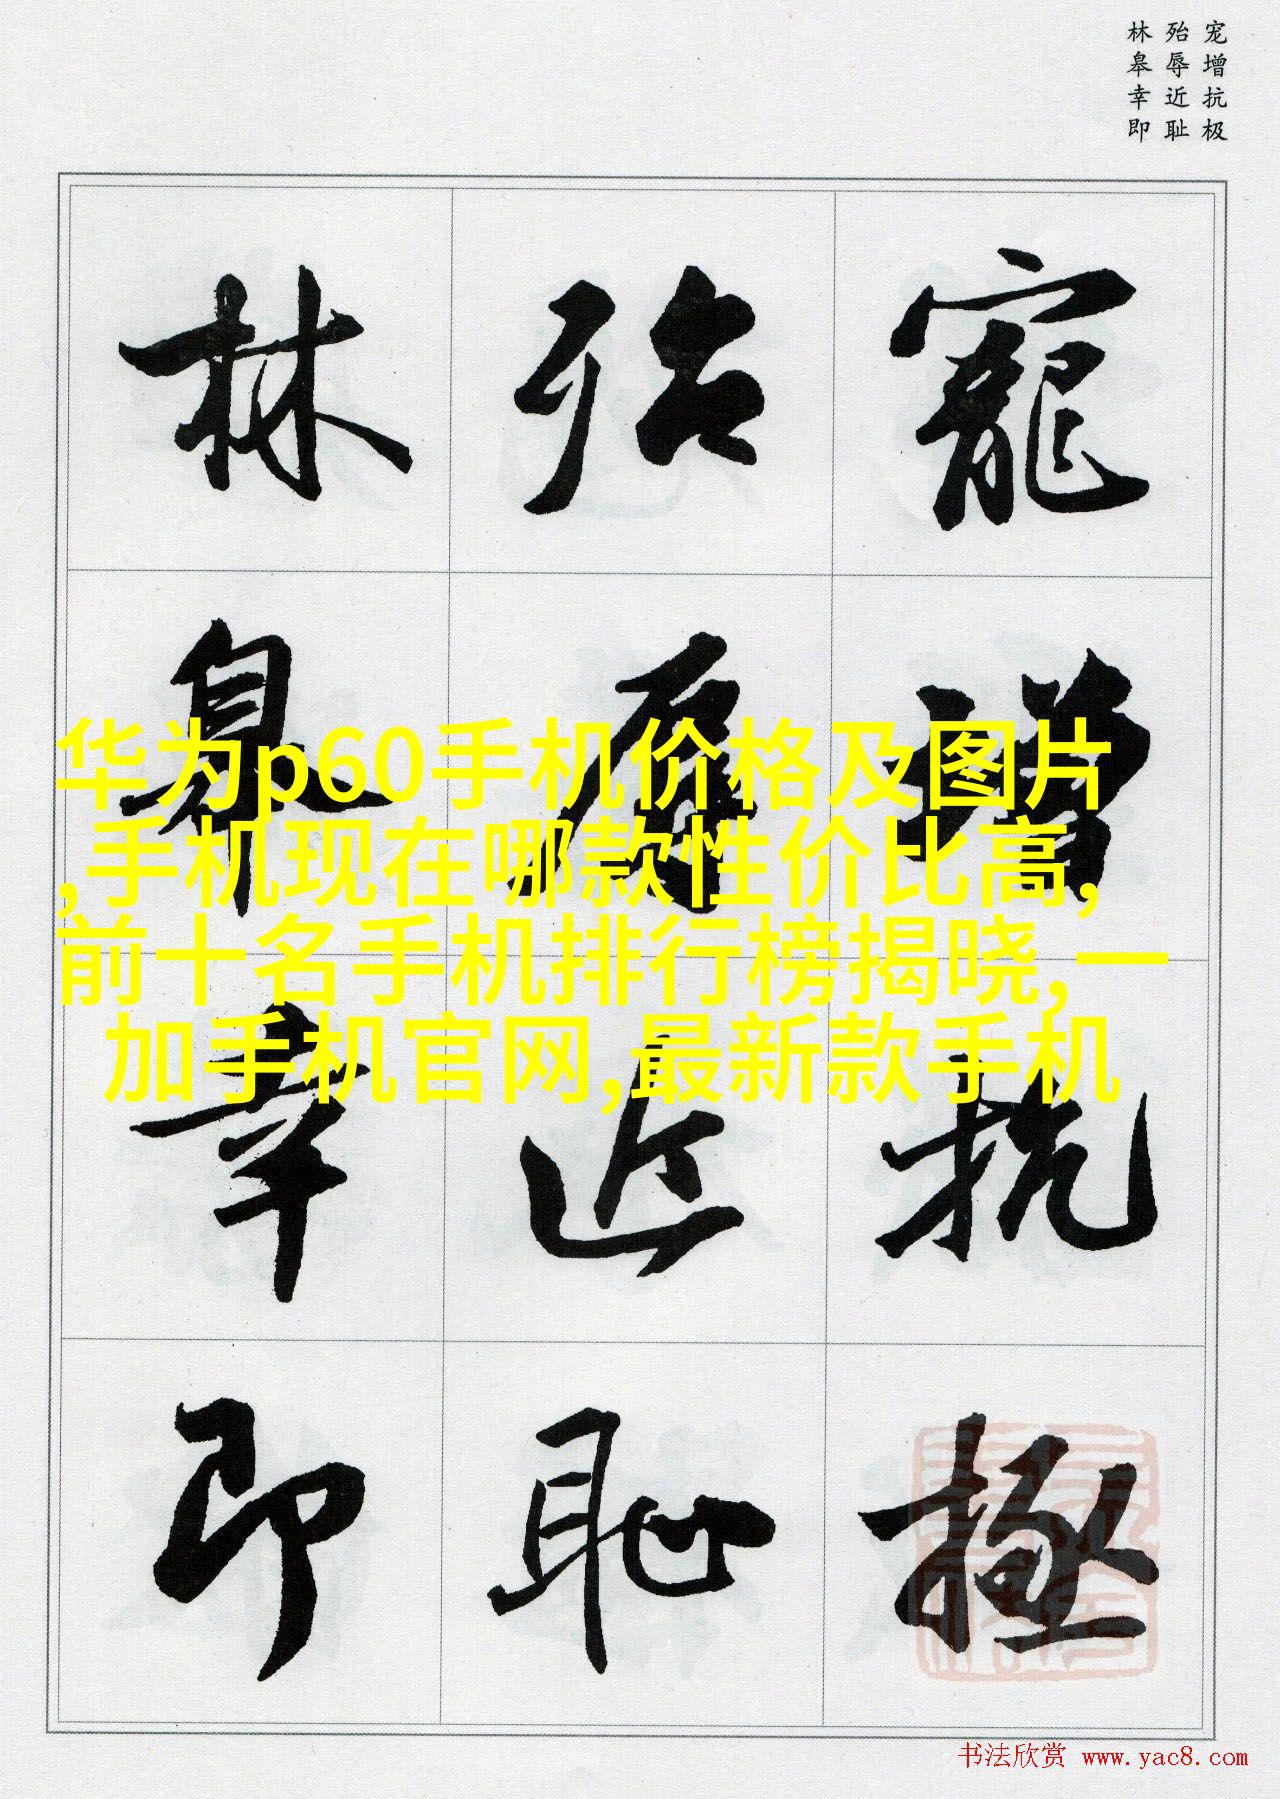 宠增抗极
殆辱近耻
林皋幸即
寵增抗極
殆辱近恥
林皋幸即
华为p60手机价格及图片
,手机现在哪款性价比高,
前十名手机排行榜揭晓,一
加手机官网,最新款手机
书法欣赏 www.yac8.com